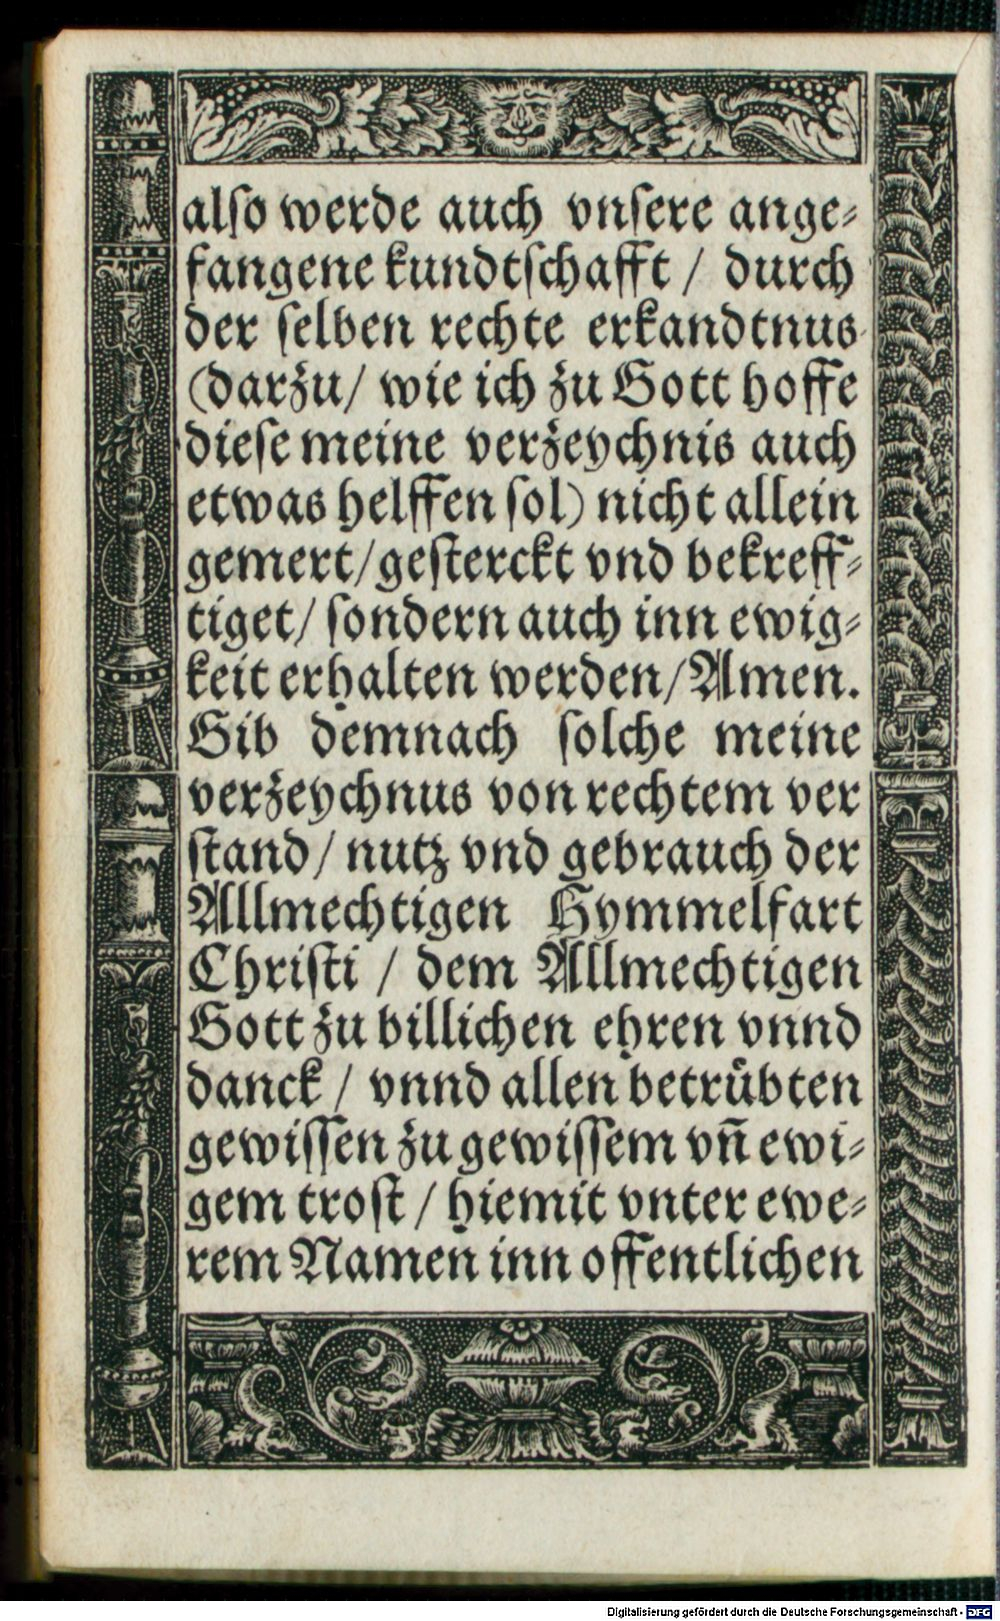 alſo werde auch vnſere ange⸗
fangene kundtſchafft / durch
der ſelben rechte erkandtnus
(darzu/ wie ich zu Gott hoffe
dieſe meine verzeychnis auch
etwas helffen ſol) nicht allein
gemert/geſterckt vnd bekreff⸗
tiget/ ſondern auch inn ewig⸗
keit erhalten werden/Amen.
Gib demnach ſolche meine
verzeychnus von rechtem ver
ſtand/ nutz vnd gebrauch der
Allmechtigen Hymmelfart
Chriſti / dem Allmechtigen
Gott zu billichen ehren vnnd
danck / vnnd allen betrübten
gewiſſen zu gewiſſem vñ ewi⸗
gem troſt / hiemit vnter ewe⸗
rem Namen inn offentlichen
Digitalisierung gefördert durch die Deutsche Forschungsgemeinschaft - DFG